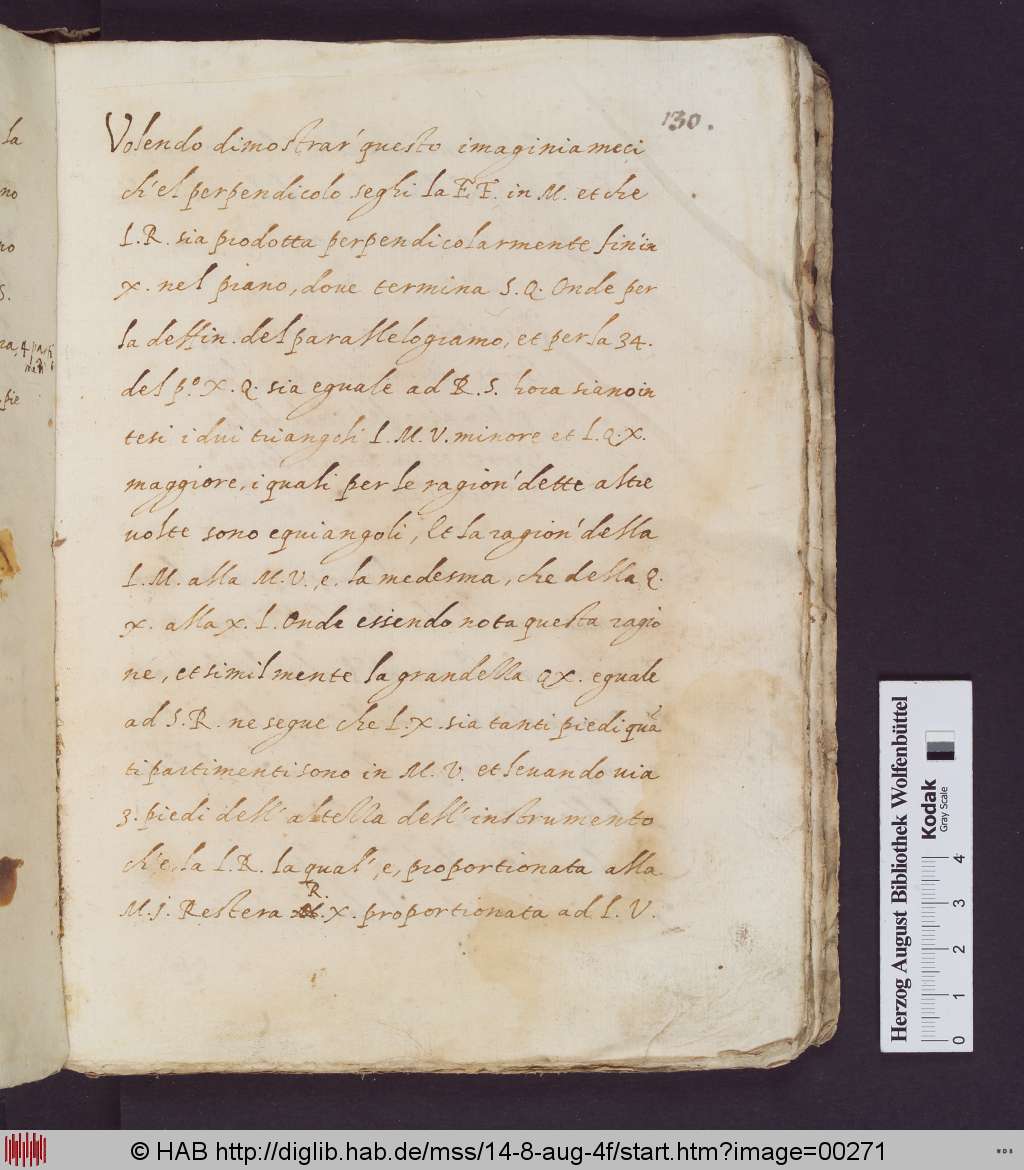 130.
Volendo dimostrar' questo imaginiameci
ch'el perpendicolo seghi la E F. in M. et che
I. R. sia prodotta perpendicolarmente fin'in
X. nel piano, doue termina S. Q. Onde per
la deffin. del parallelogramo, et per la 34.
del p.º X. Q. sia eguale ad R. S. hora siano in
tesi i dui triangoli I. M. V. minore et I. Q. X.
maggiore, i quali per le ragion' dette altre
uolte sono equiangoli, Et la ragion' della
I. M. alla M. V. e, la medesma, che della Q.
X. alla X. I. Onde essendo nota questa ragio
ne, et similmente la grandella QX. eguale
ad S. R. ne segue che I. X. sia tanti piedi quã
ti partimenti sono in M. V. et leuando uia
3. piedi dell' altella dell' instrumento
ch'e, la I. R. la qual' e, proportionata alla
M. I. Restera R. X. proportionata ad I. V.
la
no
no
S.
pie
Herzog August Bibliothek Wolfenbüttel
Kodak
Gray Scale
0 1 2 3 4
© HAB http://diglib.hab.de/mss/14-8-aug-4f/start.htm?image=00271